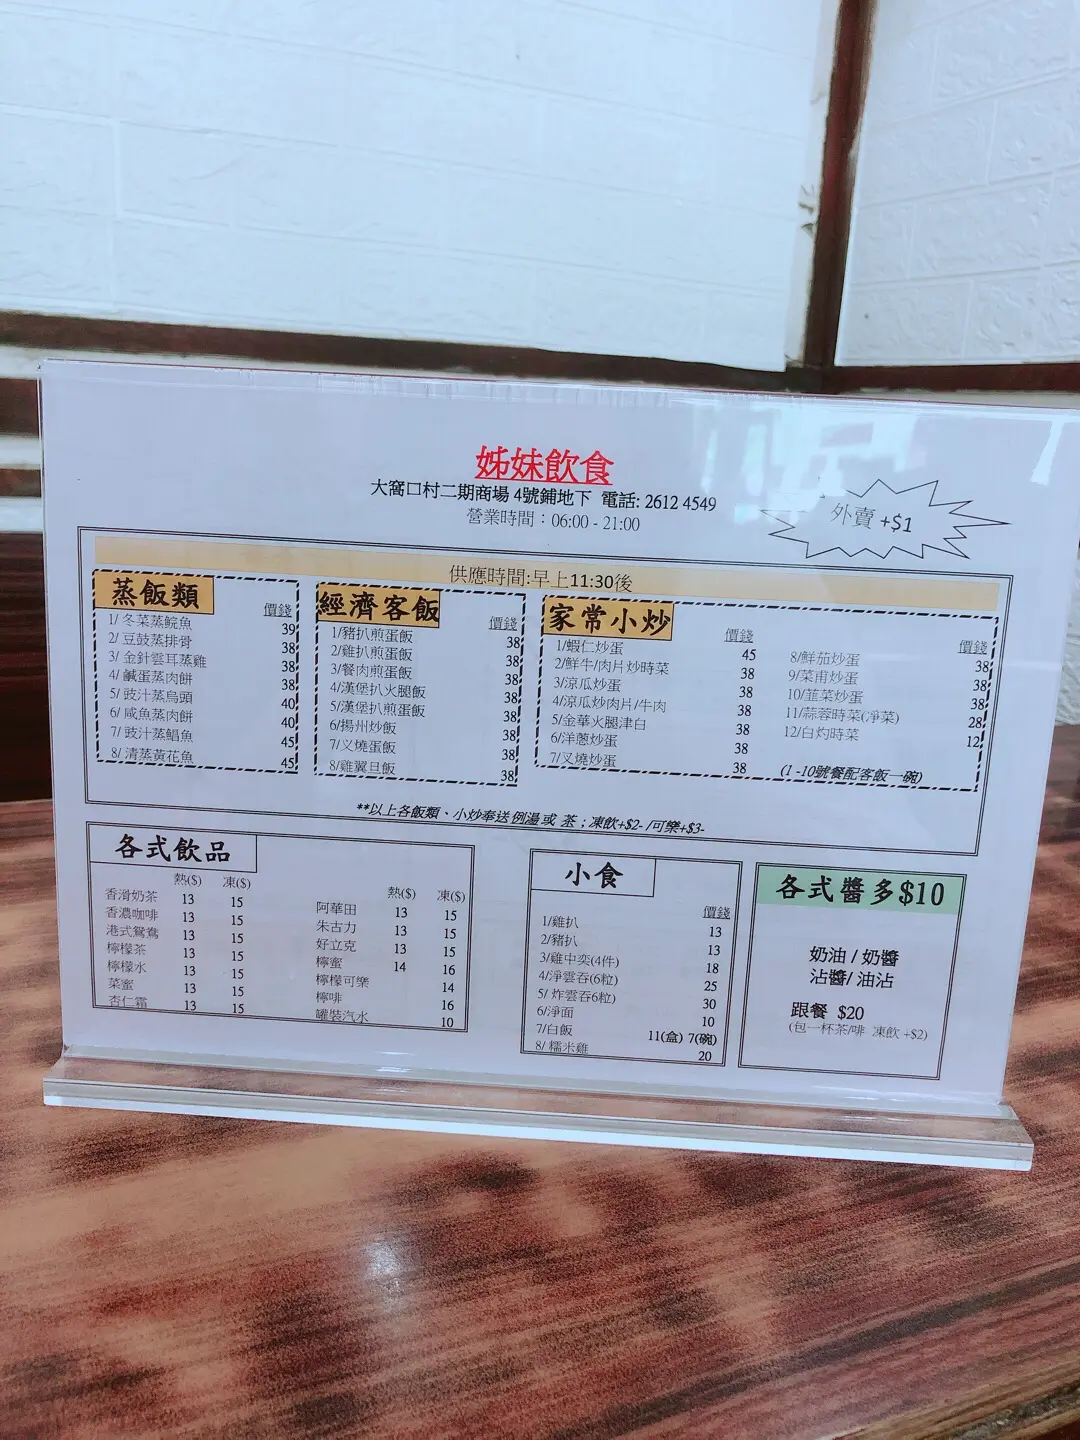 姊妹飲食
大窩口村二期商場 4號鋪地下 電話: 2612 4549
營業時間：06:00 - 21:00
外賣 +$1
供應時間:早上11:30後
蒸飯類
價錢
1/ 冬菜蒸鯇魚 39
2/ 豆鼓蒸排骨 38
3/ 金針雲耳蒸雞 38
4/ 鹹蛋蒸肉餅 38
5/ 豉汁蒸烏頭 40
6/ 咸魚蒸肉餅 40
7/ 豉汁蒸鯧魚 45
8/ 清蒸黃花魚 45
經濟客飯
價錢
1/豬扒煎蛋飯 38
2/雞扒煎蛋飯 38
3/餐肉煎蛋飯 38
4/漢堡扒火腿飯 38
5/漢堡扒煎蛋飯 38
6/揚州炒飯 38
7/义燒蛋飯 38
8/雞翼旦飯 38
家常小炒
價錢
1/蝦仁炒蛋 45
2/鮮牛/肉片炒時菜 38
3/涼瓜炒蛋 38
4/涼瓜炒肉片/牛肉 38
5/金華火腿津白 38
6/洋蔥炒蛋 38
7/叉燒炒蛋 38
價錢
8/鮮茄炒蛋 38
9/菜甫炒蛋 38
10/韮菜炒蛋 38
11/蒜蓉時菜(淨菜) 28
12/白灼時菜 12
(1 -10號餐配客飯一碗)
**以上各飯類、小炒奉送 例湯 或 茶；凍飲+$2- /可樂+$3-
各式飲品
熱($) 凍($)
香滑奶茶 13 15
香濃咖啡 13 15
港式鴛鴦 13 15
檸檬茶 13 15
檸檬水 13 15
菜蜜 13 15
杏仁霜 13 15
熱($) 凍($)
阿華田 13 15
朱古力 13 15
好立克 13 15
檸蜜 14 16
檸檬可樂 14
檸啡 16
罐裝汽水 10
小食
價錢
1/雞扒 13
2/豬扒 13
3/雞中奕(4件) 18
4/淨雲吞(6粒) 25
5/ 炸雲吞6粒) 30
6/淨面 10
7/白飯 11(盒) 7(碗)
8/ 糯米雞 20
各式醬多$10
奶油 / 奶醬
沾醬/ 油沾
跟餐 $20
(包一杯茶/啡 凍飲 +$2)